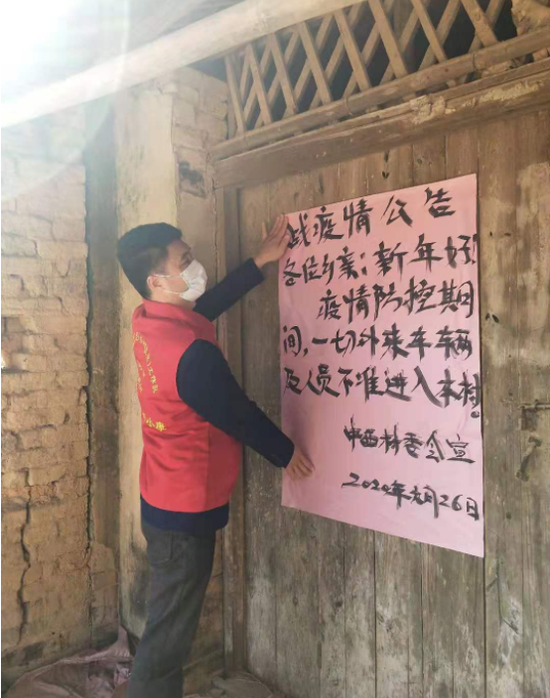 战疫情公告
各位乡亲:新年好!
疫情防控期
间,一切外来车辆
及人员不准进入本村。
中西村委会宣
2020年元月26日
小康